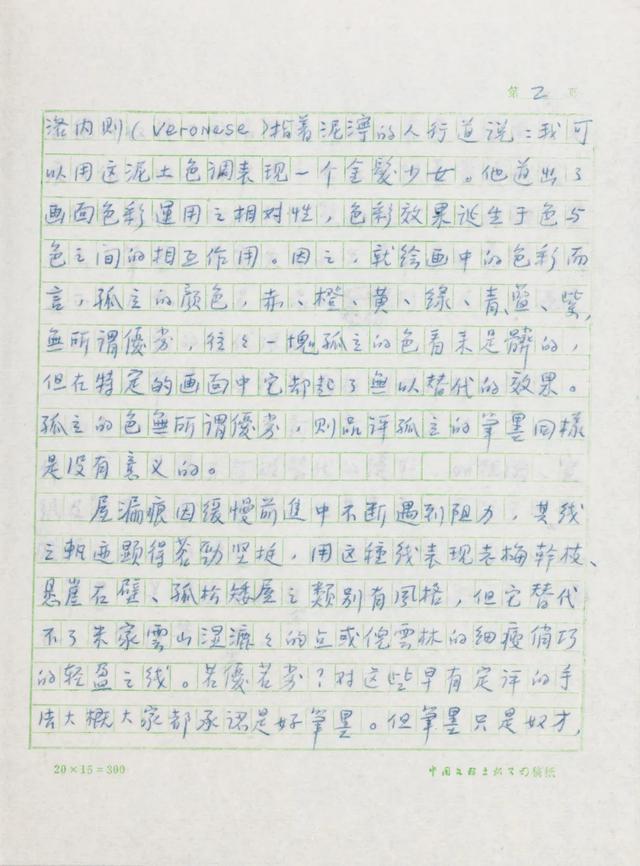 第 2 页
洛内则(Veronese)指着泥濘的人行道说:我可
以用这泥土色调表现一个金髮少女。他道出了
画面色彩運用之相对性,色彩效果诞生于色与
色之间的相互作用。因之,就绘画中的色彩而
言,孤立的颜色,赤、橙、黄、綠、青、藍、紫,
無所谓優劣,往々一塊孤立的色看来是髒的,
但在特定的画面中它却起了無以替代的效果。
孤立的色無所谓優劣,则品评孤立的筆墨同樣
是没有意义的。
屋漏痕因缓慢前進中不断遇到阻力,其线
之軌迹顯得苍劲坚挺,用这種线表现老梅幹枝、
悬崖石壁、孤松矮屋之類别有風格,但它替代
不了米家雲山湿漉々的点或倪雲林的细瘦俏巧
的轻盈之线。若優若劣?对这些早有定评的手
法大概大家都承認是好筆墨。但筆墨只是奴才,
20×15=300
中国 稿纸